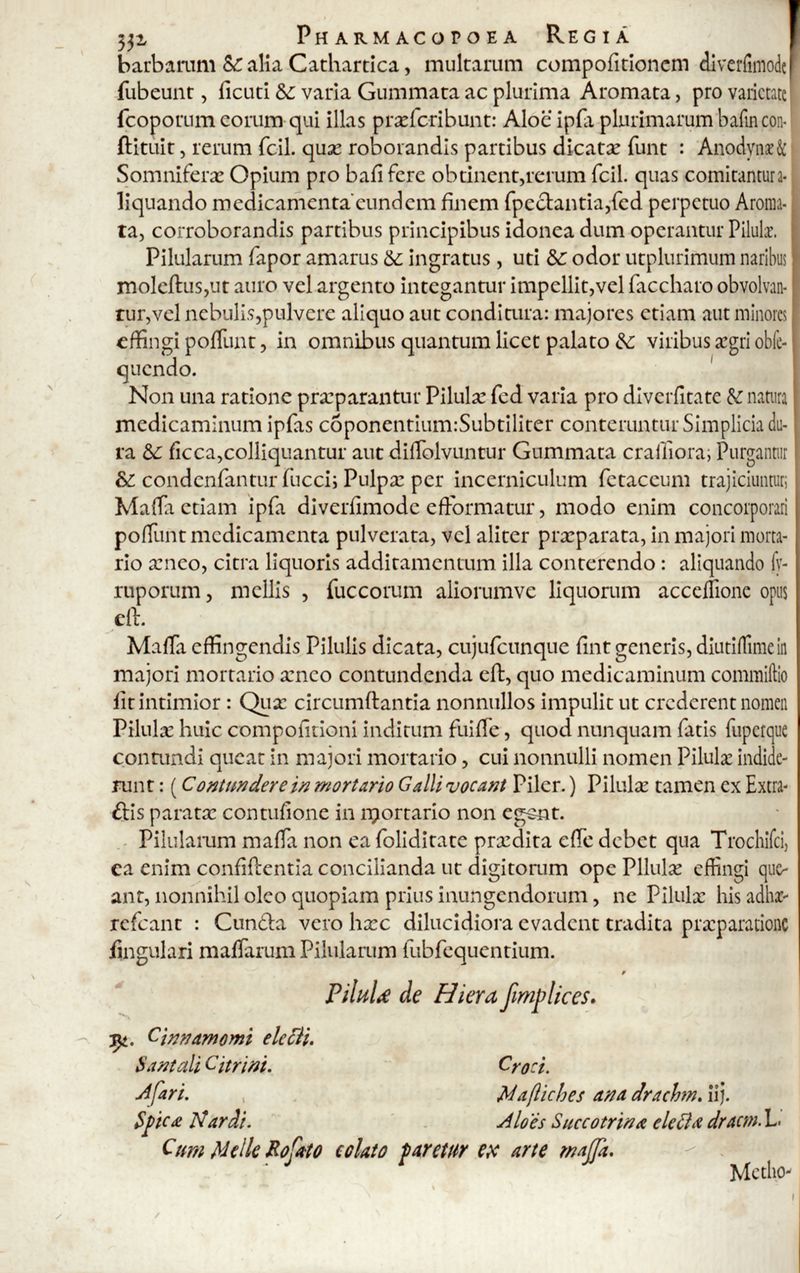 332 PHARMACOPOEA REGIA
barbarum & alia Cathartica, multarum compoſitionem diverſimode
ſubeunt, ſicuti & varia Gummata ac plurima Aromata, pro varietate
ſcoporum eorum qui illas præſcribunt: Aloë ipſa plurimarum baſin con-
ſtituit, rerum ſcil. quæ roborandis partibus dicatæ ſunt : Anodynæ &
Somniferæ Opium pro baſi fere obtinent,rerum ſcil. quas comitantur a-
liquando medicamenta eundem finem ſpectantia,ſed perpetuo Aroma-
ta, corroborandis partibus principibus idonea dum operantur Pilulæ.
Pilularum ſapor amarus & ingratus, uti & odor utplurimum naribus
moleſtus,ut auro vel argento integantur impellit,vel ſaccharo obvolvan-
tur,vel nebulis,pulvere aliquo aut conditura: majores etiam aut minores
effingi poſſunt, in omnibus quantum licet palato & viribus ægri obſe-
quendo.
Non una ratione præparantur Pilulæ ſed varia pro diverſitate & natura
medicaminum ipſas cōponentium:Subtiliter conteruntur Simplicia du-
ra & ſicca,colliquantur aut diſſolvuntur Gummata craſſiora; Purgantur
& condenſantur ſucci; Pulpæ per incerniculum ſetaceum trajiciuntur;
Maſſa etiam ipſa diverſimode efformatur, modo enim concorporari
poſſunt medicamenta pulverata, vel aliter præparata, in majori morta-
rio æneo, citra liquoris additamentum illa conterendo : aliquando ſy-
ruporum, mellis , ſuccorum aliorumve liquorum acceſſione opus
eſt.
Maſſa effingendis Pilulis dicata, cujuſcunque ſint generis, diutiſſime in
majori mortario æneo contundenda eſt, quo medicaminum commiſtio
ſit intimior : Quæ circumſtantia nonnullos impulit ut crederent nomen
Pilulæ huic compoſitioni inditum fuiſſe, quod nunquam ſatis ſuperque
contundi queat in majori mortario, cui nonnulli nomen Pilulæ indide-
runt : ( Contundere in mortario Galli vocant Piler. ) Pilulæ tamen ex Extra-
ctis paratæ contuſione in mortario non egent.
Pilularum maſſa non ea ſoliditate prædita eſſe debet qua Trochiſci,
ea enim conſiſtentia concilianda ut digitorum ope Pllulæ effingi que-
ant, nonnihil oleo quopiam prius inungendorum, ne Pilulæ his adhæ-
reſcant : Cuncta vero hæc dilucidiora evadent tradita præparatione
ſingulari maſſarum Pilularum ſubſequentium.
Pilulæ de Hiera ſimplices.
℞. Cinnamomi electi.
Santali Citrini. Croci.
Aſari. Maſtiches ana drachm. iij.
Spicæ Nardi. Aloës Succotrinæ electæ dracm. L.
Cum Melle Roſato colato paretur ex arte maſſa.
Metho-